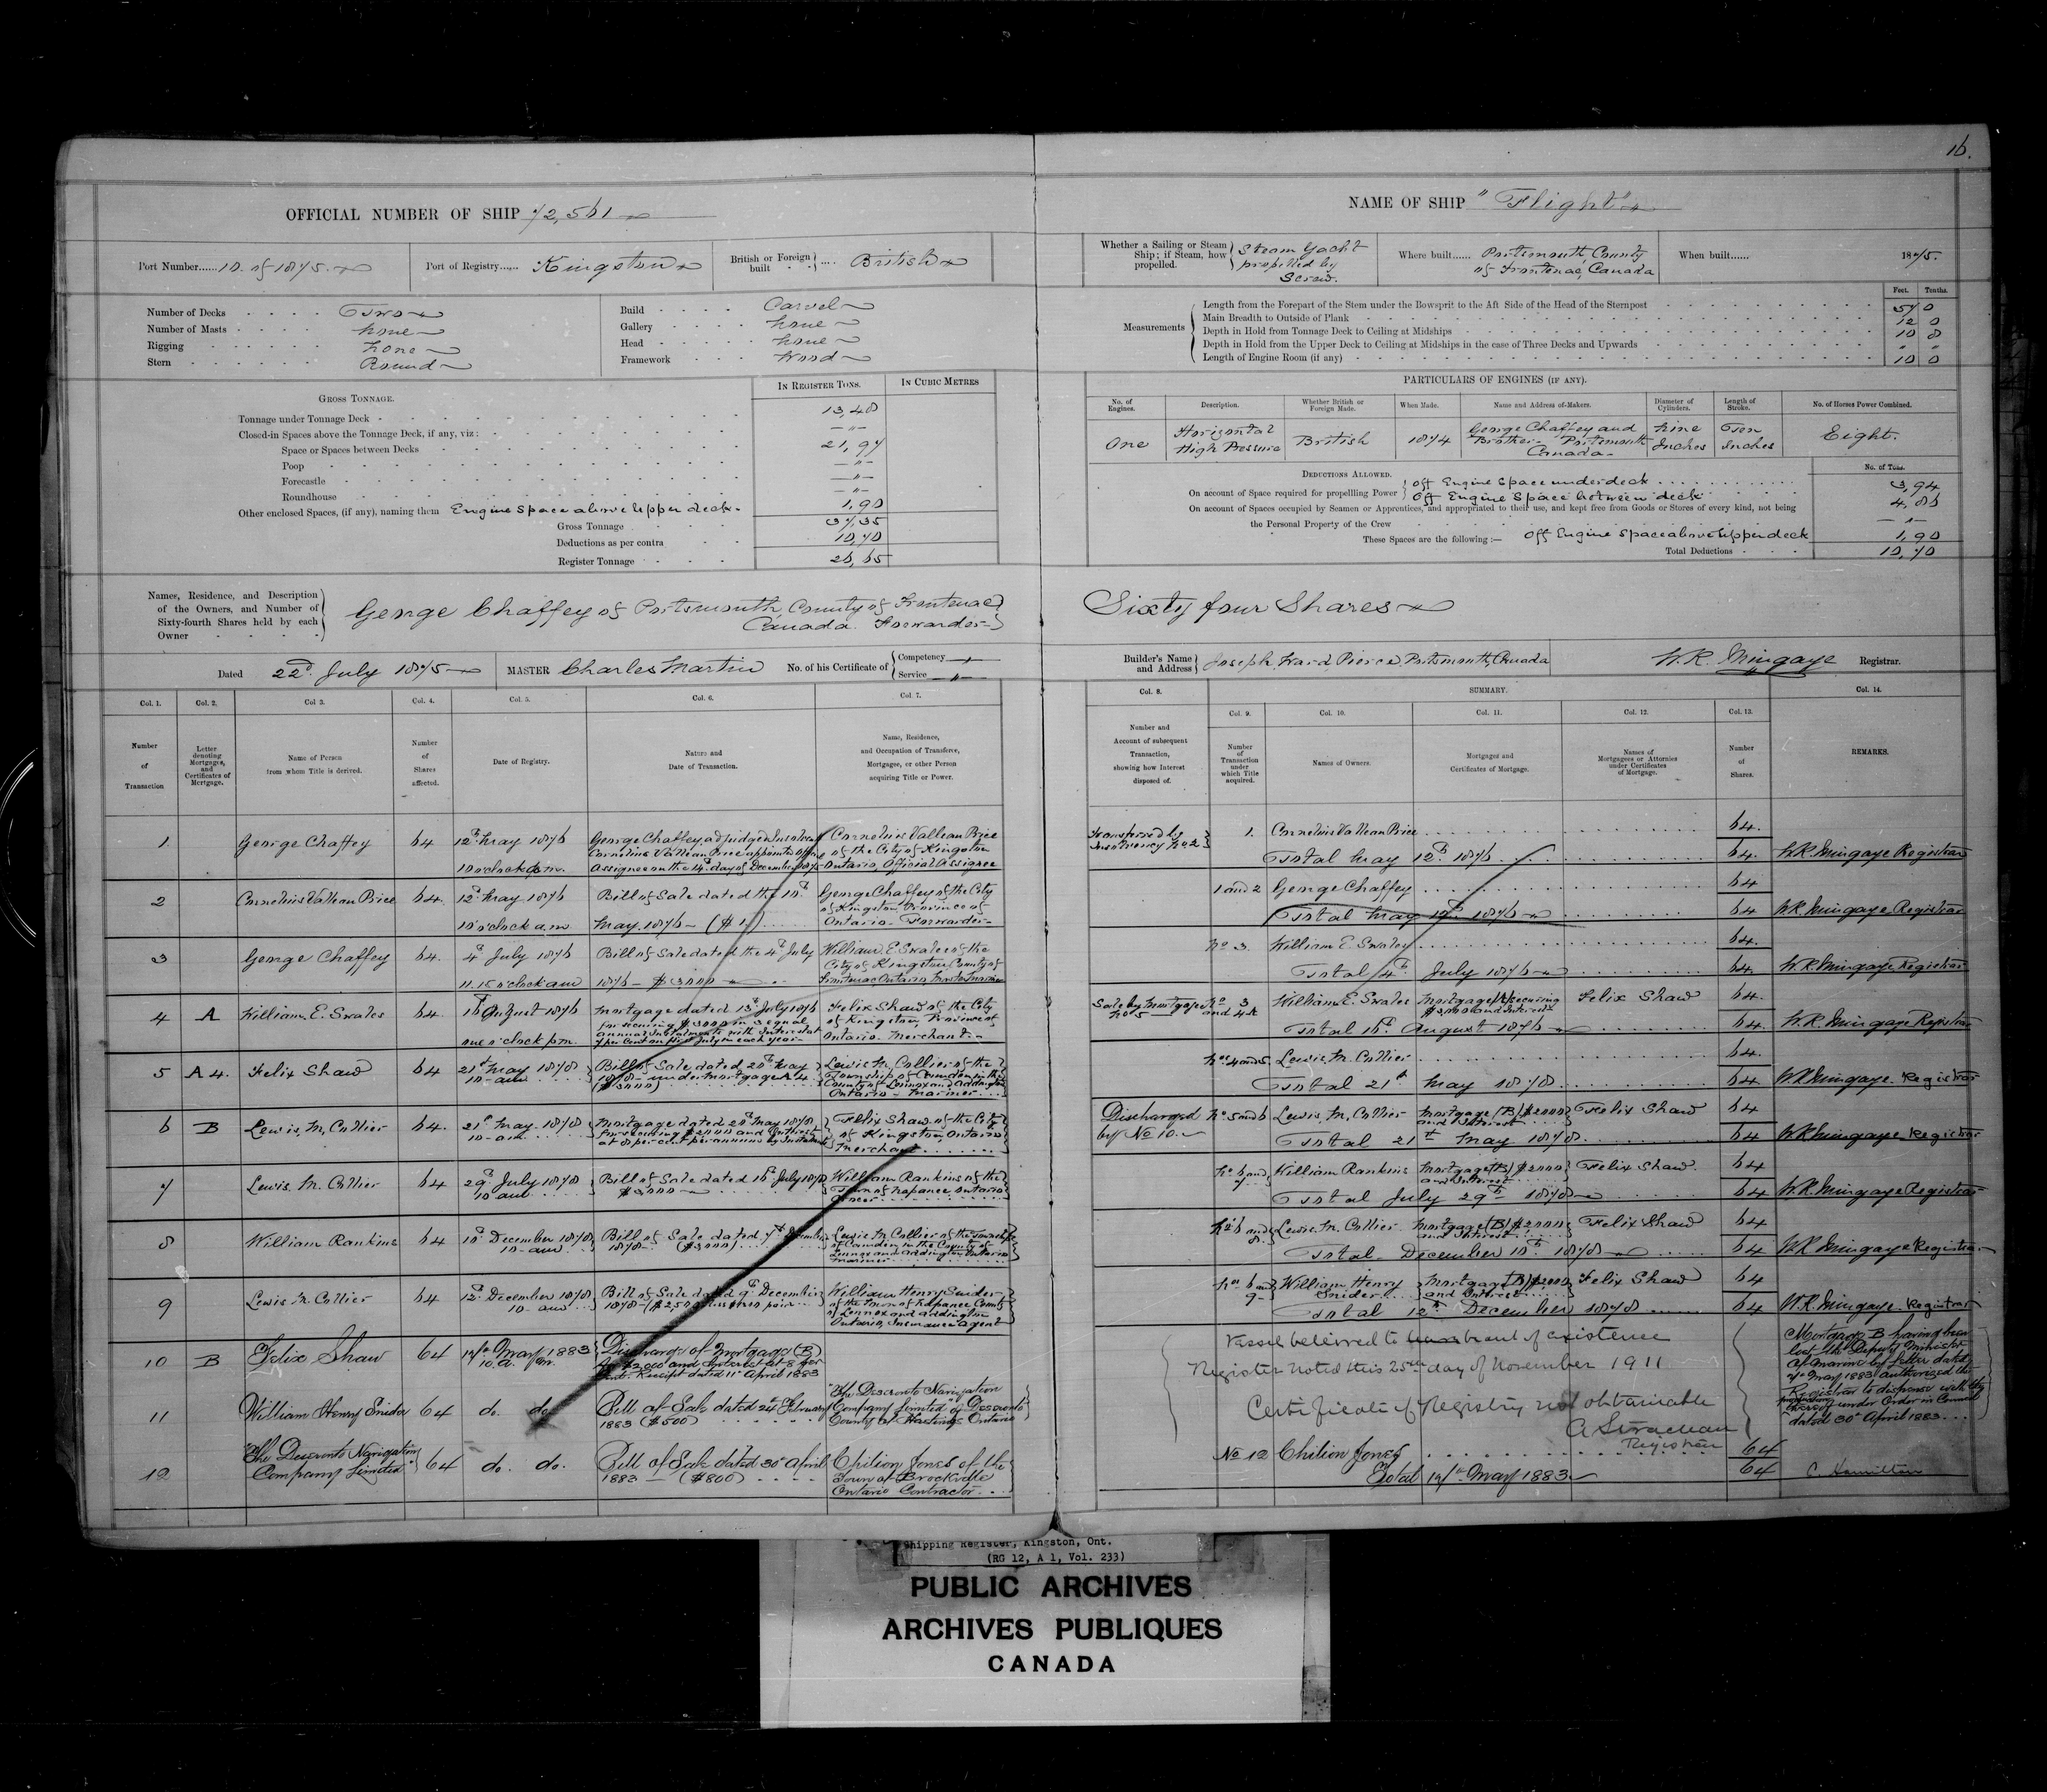 16.
OFFICIAL NUMBER OF SHIP 72,561
NAME OF SHIP "Flight"
Port Number...... 10 of 1875.
Port of Registry...... Kingston
British or Foreign built .... British
Whether a Sailing or Steam Ship; if Steam, how propelled. Steam Yacht propelled by Screw.
Where built...... Portsmouth, County of Frontenac, Canada
When built...... 1875.
Number of Decks Two
Number of Masts none
Rigging none
Stern Round
Build Carvel
Gallery none
Head none
Framework Wood
Measurements
Feet. Tenths.
Length from the Forepart of the Stem under the Bowsprit to the Aft Side of the Head of the Sternpost 57 0
Main Breadth to Outside of Plank 12 0
Depth in Hold from Tonnage Deck to Ceiling at Midships 10 8
Depth in Hold from the Upper Deck to Ceiling at Midships in the case of Three Decks and Upwards " "
Length of Engine Room (if any) 10 0
GROSS TONNAGE.
IN REGISTER TONS.
IN CUBIC METRES
Tonnage under Tonnage Deck 13,48
Closed-in Spaces above the Tonnage Deck, if any, viz: — " —
Space or Spaces between Decks 21,97
Poop — " —
Forecastle — " —
Roundhouse — " —
Other enclosed Spaces, (if any), naming them Engine Space above upper deck. 1,90
Gross Tonnage 37,35
Deductions as per contra 10,70
Register Tonnage 26,65
PARTICULARS OF ENGINES (IF ANY).
No. of Engines.
Description.
Whether British or Foreign Made.
When Made.
Name and Address of Makers.
Diameter of Cylinders.
Length of Stroke.
No. of Horses Power Combined.
One
Horizontal High Pressure
British
1874
George Chaffey and Brother Portsmouth Canada
Nine Inches
Ten Inches
Eight.
DEDUCTIONS ALLOWED.
No. of Tons.
On account of Space required for propelling Power
Off Engine Space under deck 3,94
Off Engine Space between decks 4,86
On account of Spaces occupied by Seamen or Apprentices, and appropriated to their use, and kept free from Goods or Stores of every kind, not being
the Personal Property of the Crew — " —
These Spaces are the following:— Off Engine Space above upper deck 1,90
Total Deductions 10,70
Names, Residence, and Description of the Owners, and Number of Sixty-fourth Shares held by each Owner
George Chaffey of Portsmouth County of Frontenac
Canada Forwarder
Sixty four Shares
Dated 22d July 1875
MASTER Charles Martin
No. of his Certificate of
Competency — " —
Service — " —
Builder's Name and Address Joseph Ward Pierce, Portsmouth, Canada
W.R. Mingaye Registrar.
Col. 1. Number of Transaction
Col. 2. Letter denoting Mortgages, and Certificates of Mortgage.
Col. 3. Name of Person from whom Title is derived.
Col. 4. Number of Shares affected.
Col. 5. Date of Registry.
Col. 6. Nature and Date of Transaction.
Col. 7. Name, Residence, and Occupation of Transferee, Mortgagee, or other Person acquiring Title or Power.
Col. 8. Number and Account of subsequent Transaction, showing how Interest disposed of.
SUMMARY.
Col. 9. Number of Transaction under which Title acquired.
Col. 10. Names of Owners.
Col. 11. Mortgages and Certificates of Mortgage.
Col. 12. Names of Mortgagees or Attornies under Certificates of Mortgage.
Col. 13. Number of Shares.
Col. 14. REMARKS.
1
George Chaffey
64
12th May 1876
10 o'clock a.m.
George Chaffey adjudged Insolvent
Cornelius Valleau Price appointed Official
Assignee on the 14th day of December 1875
Cornelius Valleau Price
of the City of Kingston
Ontario, Official Assignee
Transferred by Insolvency No 2
1. Cornelius Valleau Price 64.
Total May 12th 1876 64. W.R. Mingaye Registrar
2
Cornelius Valleau Price
64.
12th May 1876
10 o'clock a.m.
Bill of Sale dated the 10th
May 1876 — ($1)
George Chaffey of the City
of Kingston, Province of
Ontario. Forwarder
1 and 2 George Chaffey 64
Total May 12th 1876 64 W.R. Mingaye Registrar
3
George Chaffey
64.
4th July 1876
11.15 o'clock am
Bill of Sale dated the 4th July
1876 — $3000
William E. Swales of the
City of Kingston County of
Frontenac Ontario
No 3. William E. Swales 64.
Total 4th July 1876 64. W.R. Mingaye Registrar
4
A
William E. Swales
64.
16th August 1876
one o'clock p.m.
Mortgage dated 13th July 1876
for securing $3000 in 3 equal
annual Instalments with Interest at
per Cent on first July in each year
Felix Shaw of the City
of Kingston, Province of
Ontario. Merchant
Sale by Mortgagee No 5
No 3 and 4
William E. Swales
Mortgage (A) securing $3,000 and Interest
Felix Shaw 64.
Total 16th August 1876 64. W.R. Mingaye Registrar
5
A 4.
Felix Shaw
64
21st May 1878
10 am
Bill of Sale dated 20th May
1878 under Mortgage A 4
($3000)
Lewis M. Collier of the
Township of Camden in the
County of Lennox and Addington
Ontario - Mariner
Nos 4 and 5. Lewis M. Collier 64.
Total 21st May 1878 64. W.R. Mingaye. Registrar
6
B
Lewis M. Collier
64.
21st May 1878
10 am
Mortgage dated 20th May 1878
for securing $2000 and Interest
at 8 per cent per annum by Instalments
Felix Shaw of the City
of Kingston Ontario
Merchant
Discharged by No 10.
No 5 and 6 Lewis M. Collier
Mortgage (B) $2000 and Interest
Felix Shaw 64
Total 21st May 1878 64 W.R. Mingaye, Registrar
7
Lewis M. Collier
64
29th July 1878
10 am
Bill of Sale dated 16th July 1878
$3,000
William Rankins of the
Town of Napanee Ontario
Grocer
No 6 and 7 William Rankins
Mortgage (B) $2000 and Interest
Felix Shaw. 64
Total July 29th 1878 64 W.R. Mingaye Registrar
8
William Rankins
64
10th December 1878
10 am
Bill of Sale dated 7th December
1878 ($3000)
Lewis M. Collier of the Township
of Camden in the County of
Lennox and Addington Ontario
Mariner
No 6 and 8. Lewis M. Collier
Mortgage (B) $2000 and Interest
Felix Shaw 64
Total December 10th 1878 64 W.R. Mingaye Registrar
9
Lewis M. Collier
64
12th December 1878
10 am
Bill of Sale dated 9th December
1878 — ($2500
William Henry Snider
of the Town of Napanee County
of Lennox and Addington
Ontario, Insurance Agent
No 6 and 9 William Henry Snider
Mortgage (B) $2000 and Interest
Felix Shaw 64
Total 12th December 1878 64 W.R. Mingaye. Registrar
10
B
Felix Shaw
64
17th May 1883
10. a. m.
Discharge of Mortgage (B)
for $2,000 and Interest at 8 per
Cent. Receipt dated 11th April 1883
Vessel believed to be out of existence
Register noted this 25th day of November 1911
Certificate of Registry not obtainable
A Strachan
Registrar
Mortgage B having been
lost the Deputy Minister
of Marine by letter dated
7th May 1883 authorized the
Registrar to dispense with the
production thereof under Order in Council
dated 30th April 1883
11
William Henry Snider
64
do. do.
Bill of Sale dated 24th February
1883 ($500)
The Deseronto Navigation
Company Limited of Deseronto
County of Hastings Ontario
12
"The Deseronto Navigation
Company Limited"
64
do. do.
Bill of Sale dated 30th April
1883 — ($800)
Chilion Jones of the
Town of Brockville
Ontario Contractor
No 12 Chilion Jones 64
Total 17th May 1883 64 C. Hamilton
Shipping Register, Kingston, Ont.
(RG 12, A 1, Vol. 233)
PUBLIC ARCHIVES
ARCHIVES PUBLIQUES
CANADA